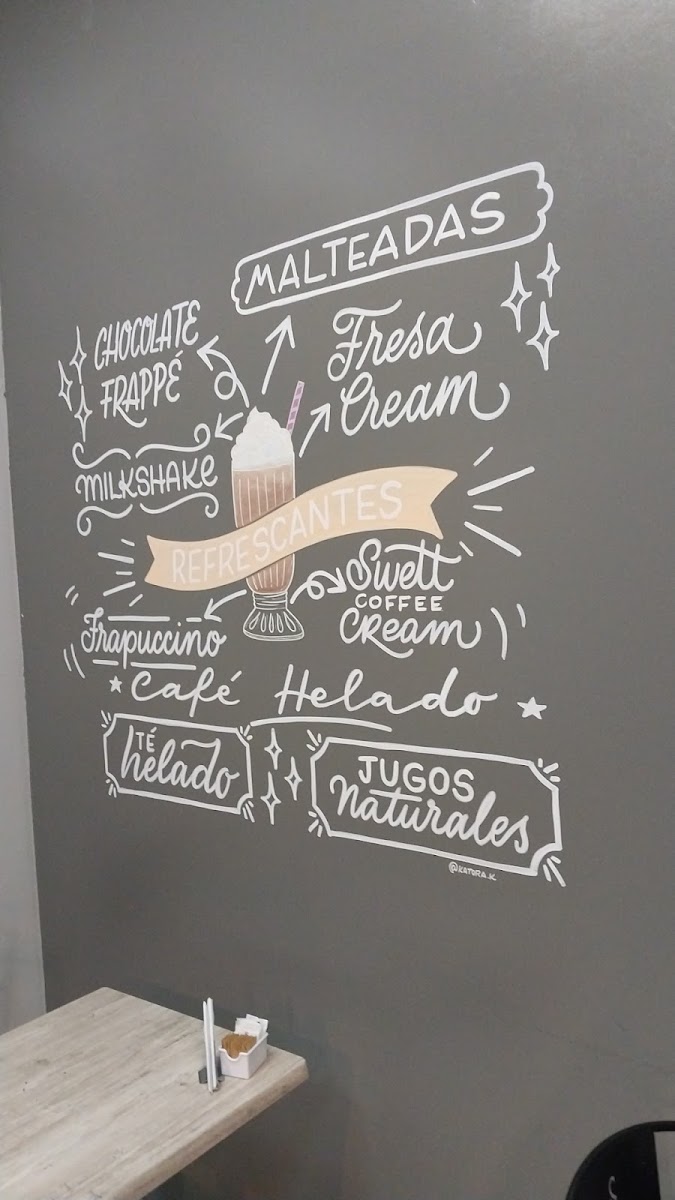 MALTEADAS
CHOCOLATE
FRAPPÉ
Fresa
Cream
MILKSHAKE
REFRESCANTES
Swett
COFFEE
CREAM
Frapuccino
Café Helado
TÉ
helado
JUGOS
Naturales
@KATORA.K